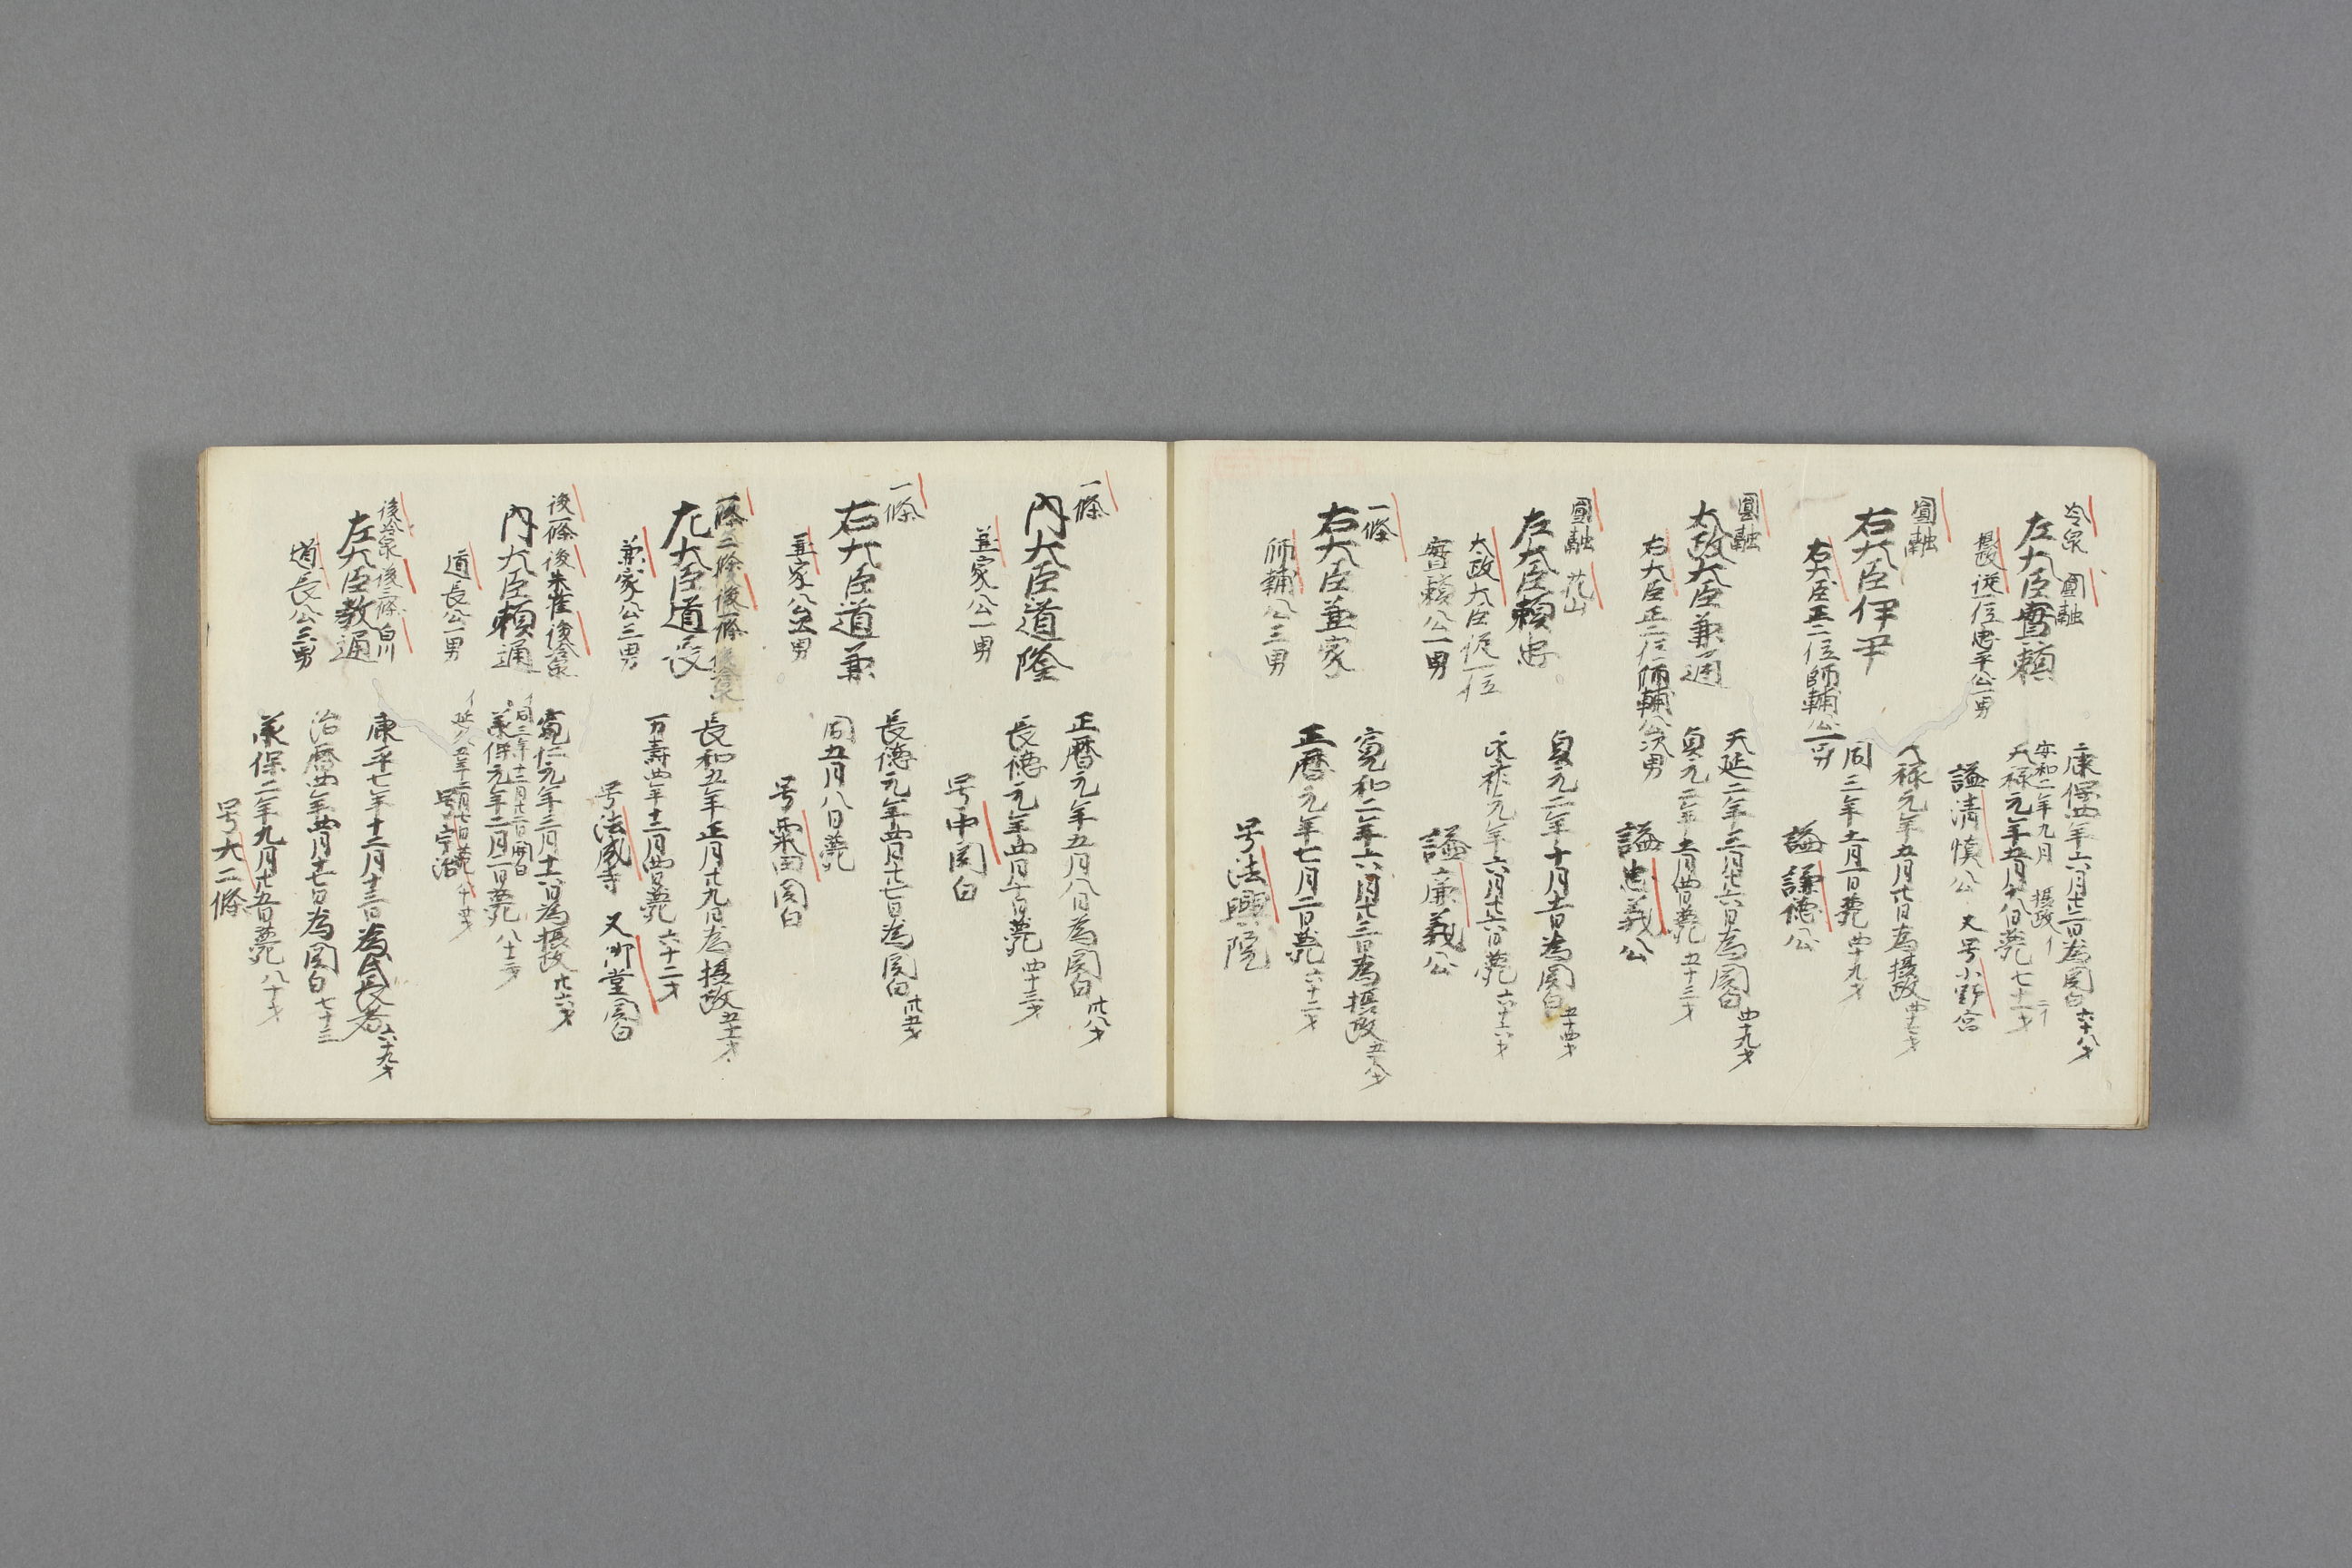 冷泉 圓融
左大臣實頼
摂政従一位忠平公一男
康保四年六月廿二日為関白六十八才
安和二年九月 摂政イ
天禄元年五月十八日薨七十一才
謚清慎公 又号小野宮
圓融
右大臣伊尹
右大臣正二位師輔公一男
天禄元年五月廿日為摂政四十七才
同三年十一月一日薨四十九才
謚謙徳公
圓融
太政大臣兼通
右大臣正二位師輔公次男
天延二年三月廿六日為関白四十九才
貞元二年十一月四日薨五十三才
謚忠義公
圓融 花山
左大臣頼忠
太政大臣従一位
實頼公一男
貞元二年十月十一日為関白五十四才
永祚元年六月廿六日薨六十六才
謚廉義公
一條
右大臣兼家
師輔公三男
寛和二年六月廿三日為摂政五十八才
正暦元年七月二日薨六十二才
号法興院
一條
内大臣道隆
兼家公一男
正暦元年五月八日為関白卅八才
長徳元年四月十日薨四十三才
号中関白
一條
右大臣道兼
兼家公三男
長徳元年四月廿七日為関白卅五才
同五月八日薨
号粟田関白
一條 三條 後一條 後冷泉
左大臣道長
兼家公三男
長和五年正月廿九日為摂政五十一才
万壽四年十二月四日薨六十二才
号法成寺 又御堂関白
後一條 後朱雀 後冷泉
内大臣頼通
道長公一男
寛仁元年三月十六日為摂政廿六才
イ同三年十二月廿二日関白
承保元年二月二日薨八十三才
号宇治
後冷泉 後三條 白川
左大臣教通
道長公三男
康平七年十二月十三日為氏長者六十九才
治暦四年四月十七日為関白七十三
承保二年九月廿五日薨八十才
号大二條